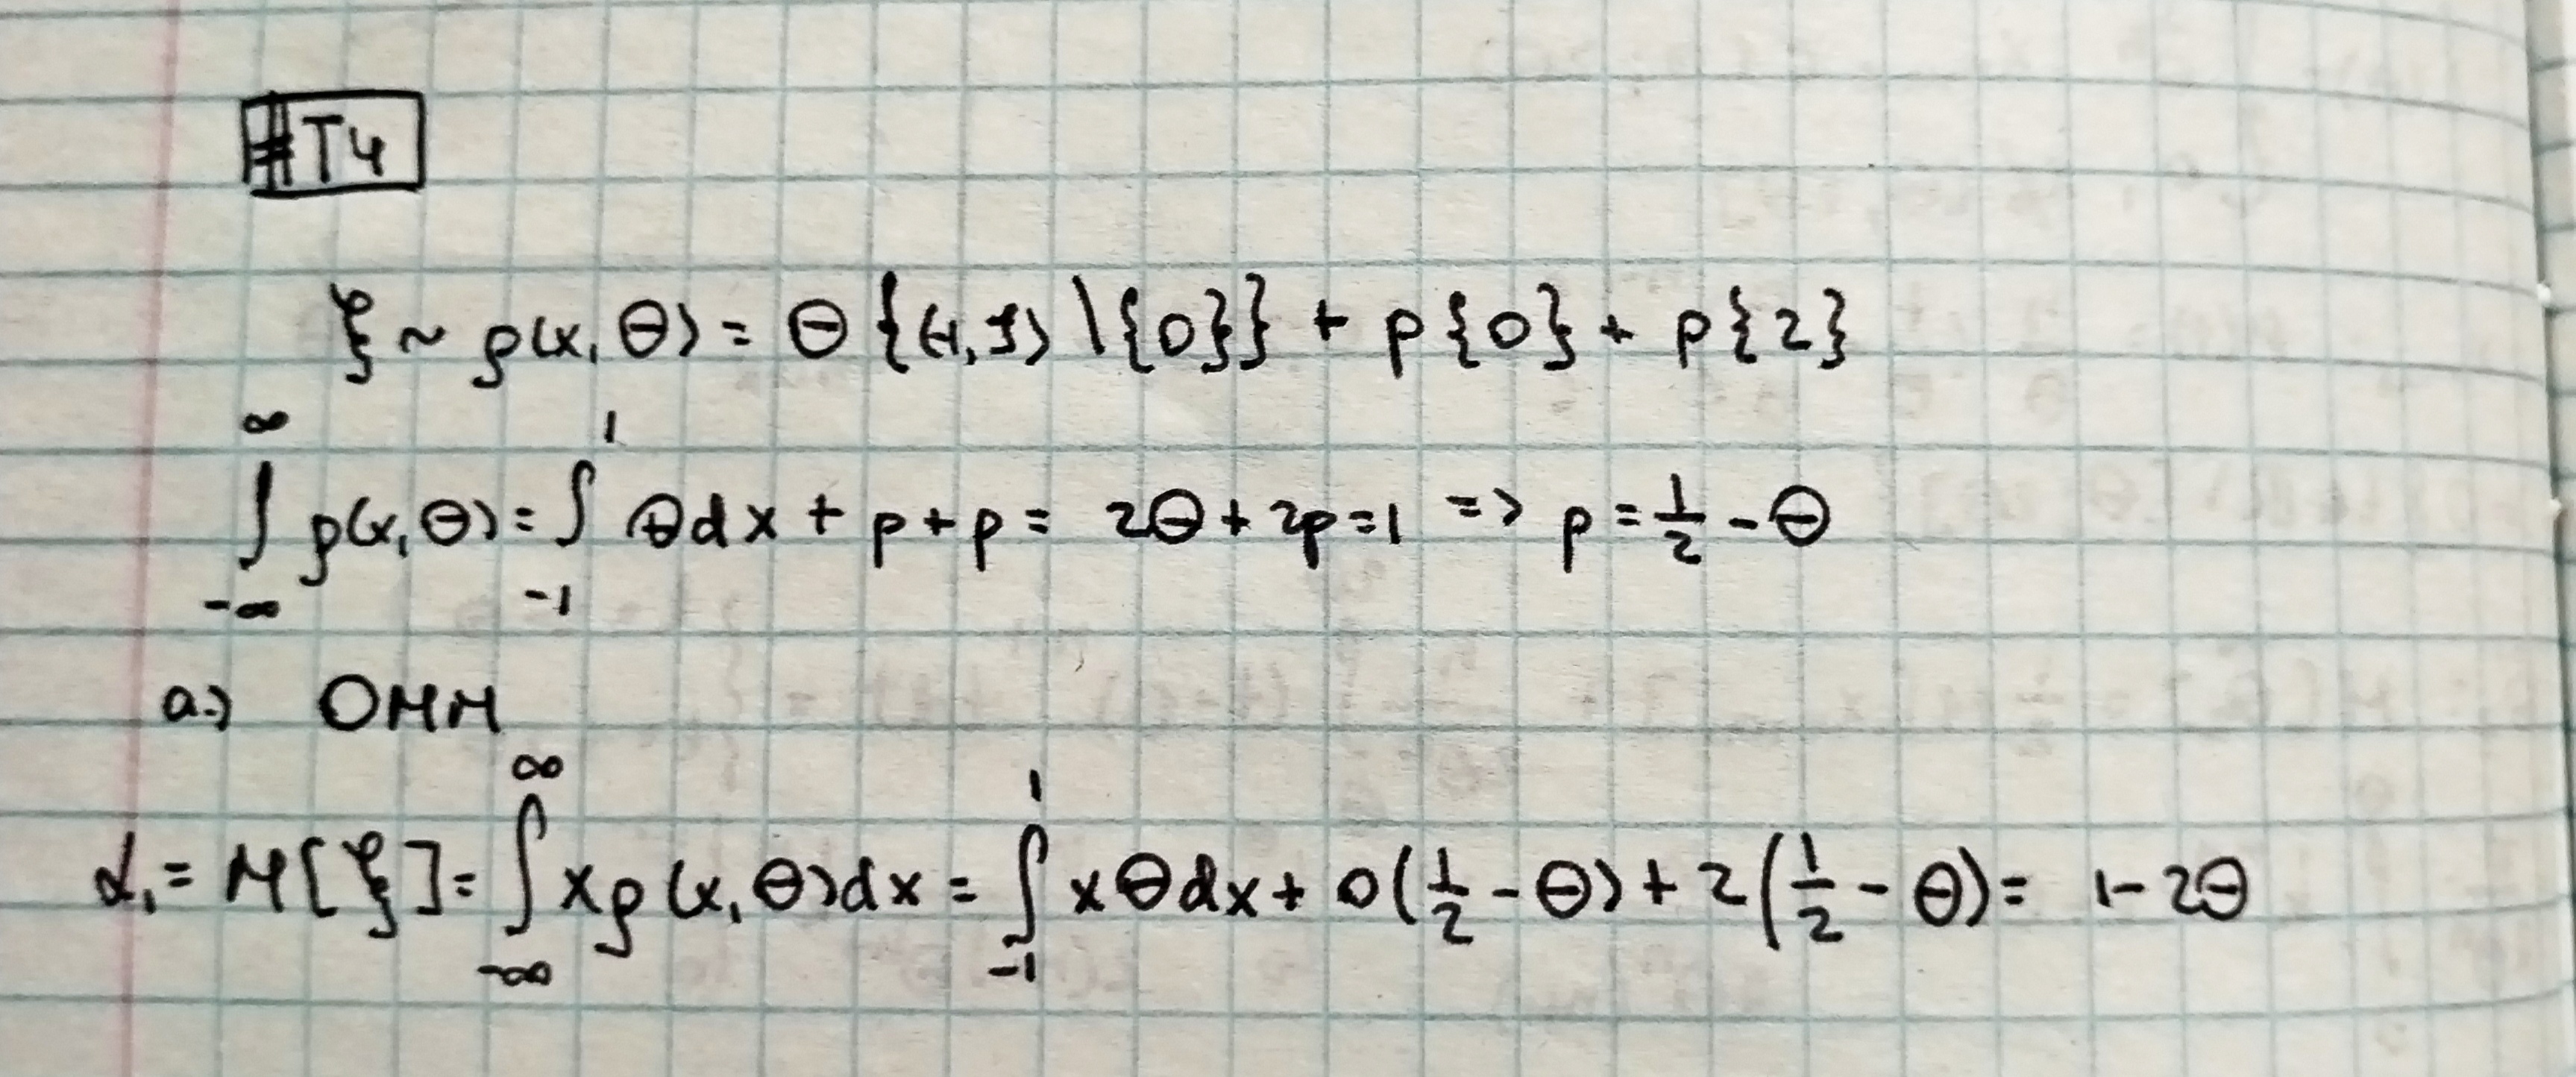 #T4
ξ ~ ρ(x, Θ) = Θ {(-1, 1) \ {0}} + p{0} + p{2}
∫_{-∞}^{∞} ρ(x, Θ) = ∫_{-1}^{1} Θdx + p + p = 2Θ + 2p = 1 => p = 1/2 - Θ
a.) ОММ
α₁ = M[ξ] = ∫_{-∞}^{∞} xρ(x, Θ)dx = ∫_{-1}^{1} xΘdx + 0(1/2 - Θ) + 2(1/2 - Θ) = 1 - 2Θ